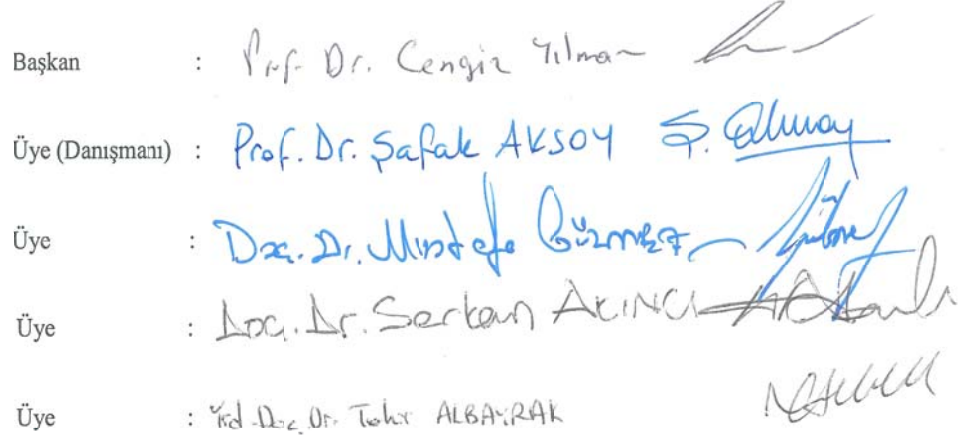 Başkan : Prof. Dr. Cengiz Yılmaz
Üye (Danışmanı) : Prof. Dr. Şafak AKSOY
Üye : Doç. Dr. Mustafa Gülmez
Üye : Doç. Dr. Serkan AKINCI
Üye : Yrd. Doç. Dr. Tahir ALBAYRAK